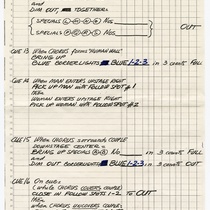 AND
DIM OUT, TOGETHER:
SPECIALS
OUT
SPECIALS
CUE 13 WHEN CHORUS FORMS "HUMAN WALL"
BRING UP
BLUE BORDERLIGHTS BLUE 1-2-3 IN 3 COUNTS FULL
CUE 14 WHEN MAN ENTERS UPSTAGE RIGHT
PICK UP MAN WITH FOLLOW SPOT #1
WOMAN ENTERS UPSTAGE RIGHT
PICK UP WOMAN WITH FOLLOW SPOT #2
CUE 15 WHEN CHORUS SURROUNDS COUPLE
DOWNSTAGE CENTER -
BRING UP SPECIAL IN 3 COUNTS FULL
AND
DIM OUT BORDERLIGHTS BLUE 1-2-3 IN 3 COUNTS OUT
CUE 16 ON CUE:
(WHILE CHORUS COVERS COUPLE)
CLOSE IN FOLLOW SPOTS 1-2 TO OUT
AND
WHEN CHORUS UNCOVERS COUPLE